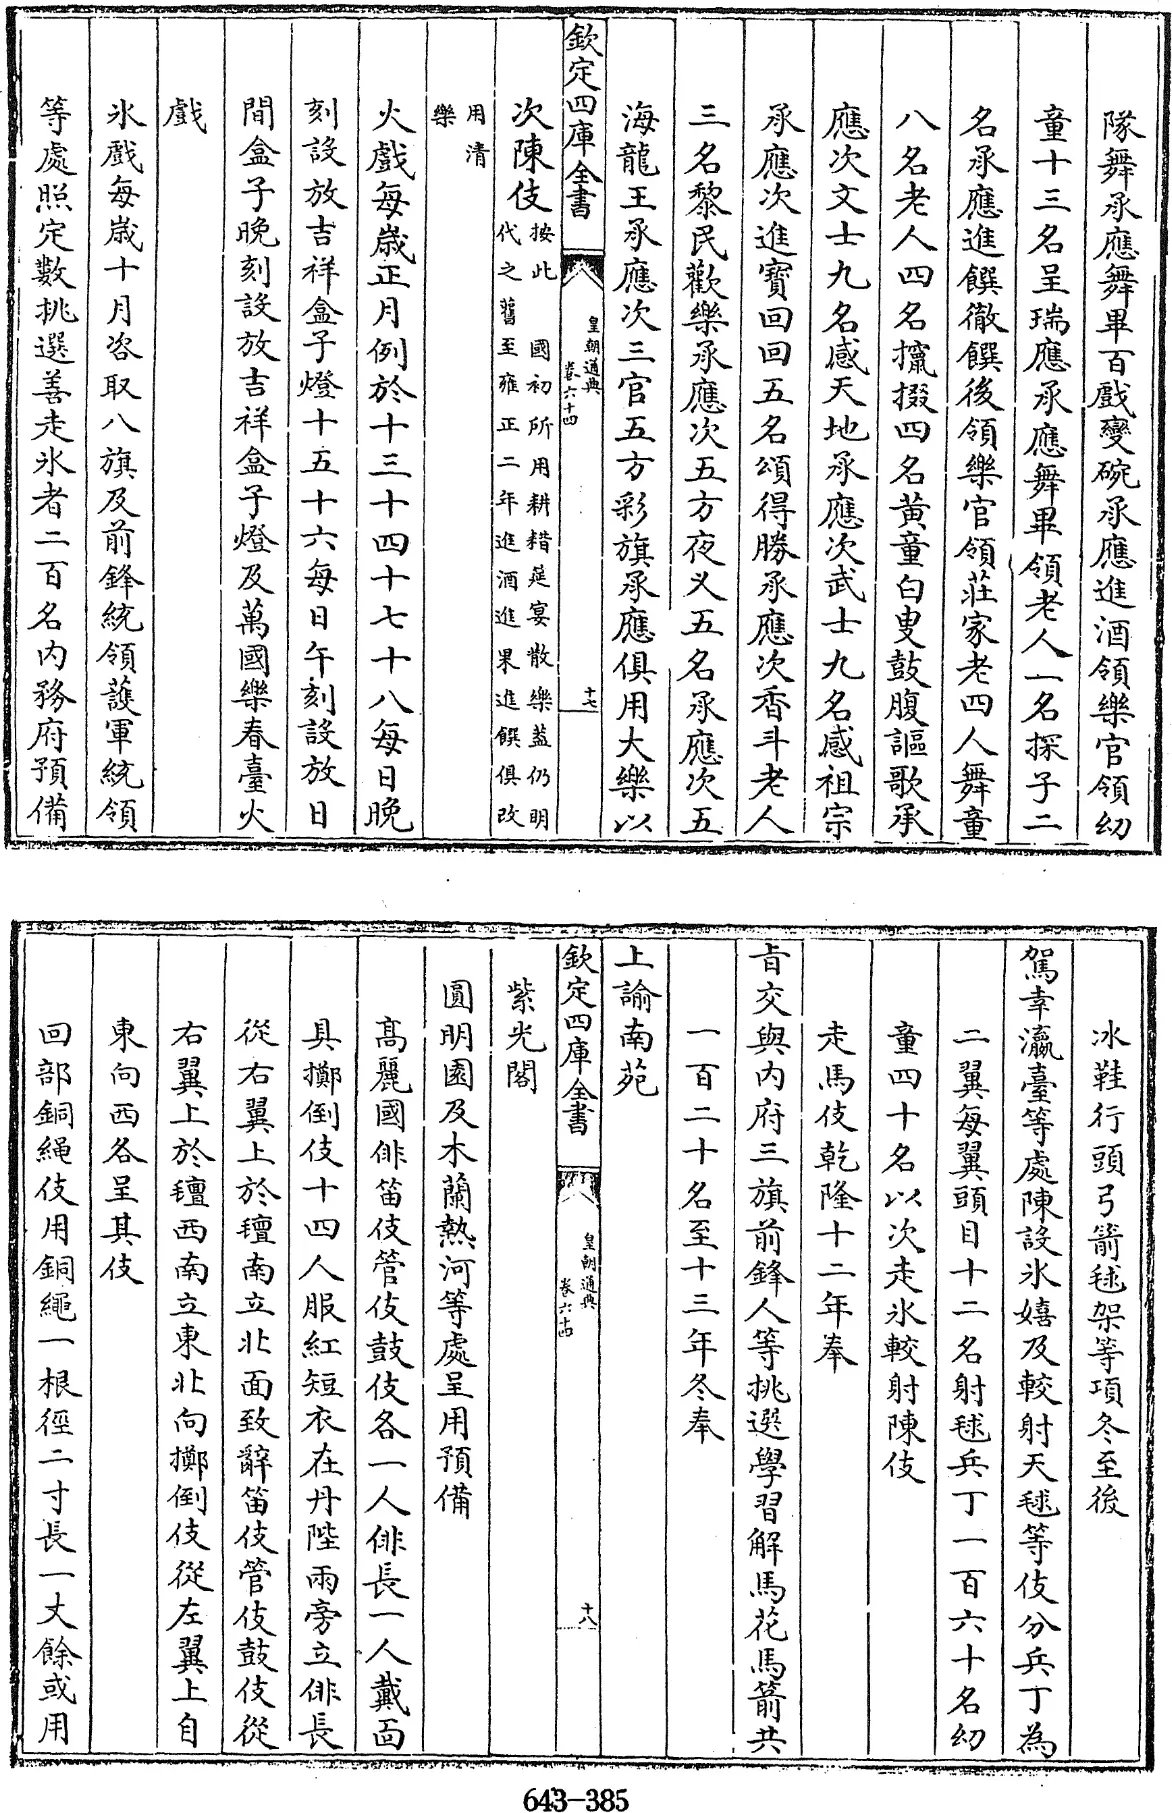 隊舞承應舞畢百戲變碗承應進酒領樂官領幼
童十三名呈瑞應承應舞畢領老人一名探子二
名承應進饌徹饌後領樂官領莊家老四人舞童
八名老人四名攛掇四名黄童白叟鼓腹謳歌承
應次文士九名感天地承應次武士九名感祖宗
承應次進寶回回五名頌得勝承應次香斗老人
三名黎民歡樂承應次五方夜义五名承應次五
海龍王承應次三官五方彩旗承應俱用大樂以
欽定四庫全書
皇朝通典
卷六十四
十七
次陳伎
按此 國初所用耕耤筵宴散樂葢仍明
代之舊至雍正二年進酒進果進饌俱改
用清
樂
火戲每歲正月例於十三十四十七十八每日晚
刻設放吉祥盒子燈十五十六每日午刻設放日
間盒子晚刻設放吉祥盒子燈及萬國樂春臺火
戲
氷戲每歲十月咨取八旗及前鋒統領護軍統領
等處照定數挑選善走氷者二百名内務府預備
冰鞋行頭弓箭毬架等項冬至後
駕幸瀛臺等處陳設氷嬉及較射天毬等伎分兵丁為
二翼每翼頭目十二名射毬兵丁一百六十名幼
童四十名以次走氷較射陳伎
走馬伎乾隆十二年奉
㫖交與内府三旗前鋒人等挑選學習解馬花馬箭共
一百二十名至十三年冬奉
上諭南苑
欽定四庫全書
皇朝通典
卷六十四
十八
紫光閣
圓明園及木蘭熱河等處呈用預備
髙麗國俳笛伎管伎鼓伎各一人俳長一人戴面
具擲倒伎十四人服紅短衣在丹陛兩旁立俳長
從右翼上於氊南立北面致辭笛伎管伎鼓伎從
右翼上於氊西南立東北向擲倒伎從左翼上自
東向西各呈其伎
回部銅繩伎用銅繩一根徑二寸長一丈餘或用
643-385